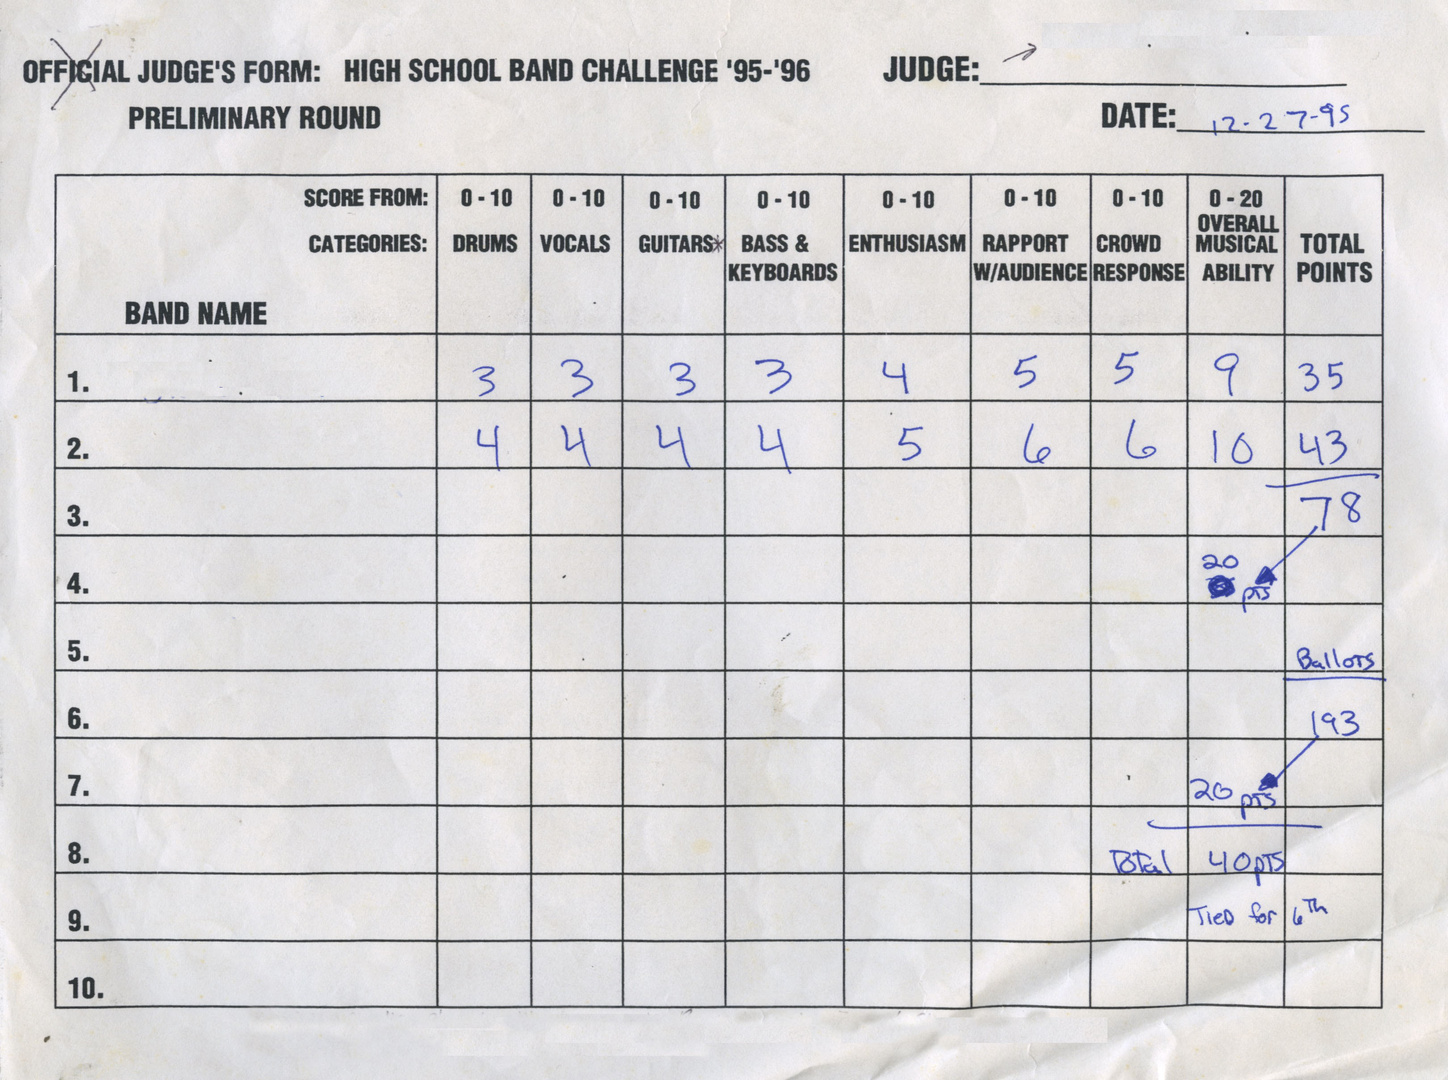 OFFICIAL JUDGE'S FORM: HIGH SCHOOL BAND CHALLENGE '95-'96 JUDGE:
PRELIMINARY ROUND DATE: 12-27-95
SCORE FROM: 0 - 10 0 - 10 0 - 10 0 - 10 0 - 10 0 - 10 0 - 10 0 - 20
CATEGORIES: DRUMS VOCALS GUITARS* BASS & KEYBOARDS ENTHUSIASM RAPPORT W/AUDIENCE CROWD RESPONSE OVERALL MUSICAL ABILITY TOTAL POINTS
BAND NAME
1. 3 3 3 3 4 5 5 9 35
2. 4 4 4 4 5 6 6 10 43
3. 78
4. 20 pts
5. Ballots
6. 193
7. 20 pts
8. Total 40pts
9. Tied for 6th
10.